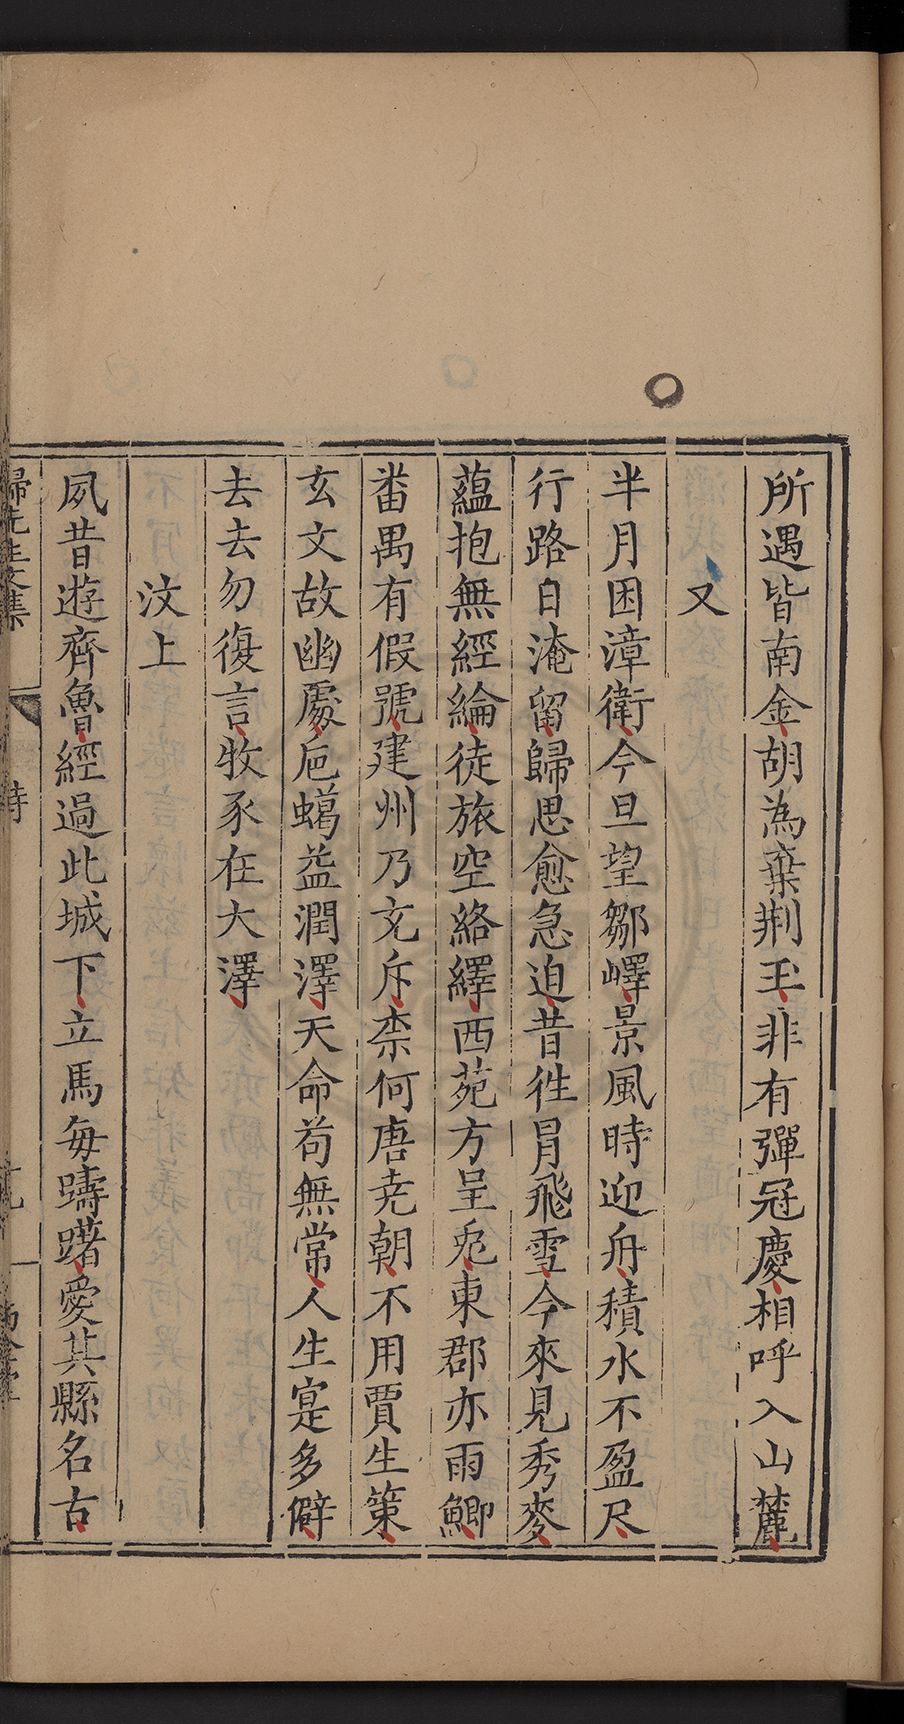 所遇皆南金胡為棄荆玉非有彈冠慶相呼入山麓
又
半月困漳衛今旦望鄒嶧景風時迎舟積水不盈尺
行路日淹留歸思愈急迫昔徃冐飛雪今來見秀麥
蘊抱無經綸徒旅空絡繹西苑方呈兎東郡亦雨鯽
畨禺有假號建州乃充斥柰何唐尭朝不用賈生策
玄文故幽處巵蠍益潤澤天命茍無常人生寔多僻
去去勿復言牧豕在大澤
汶上
夙昔遊齊魯經過此城下立馬每躊躇愛其縣名古
歸先生文集
詩